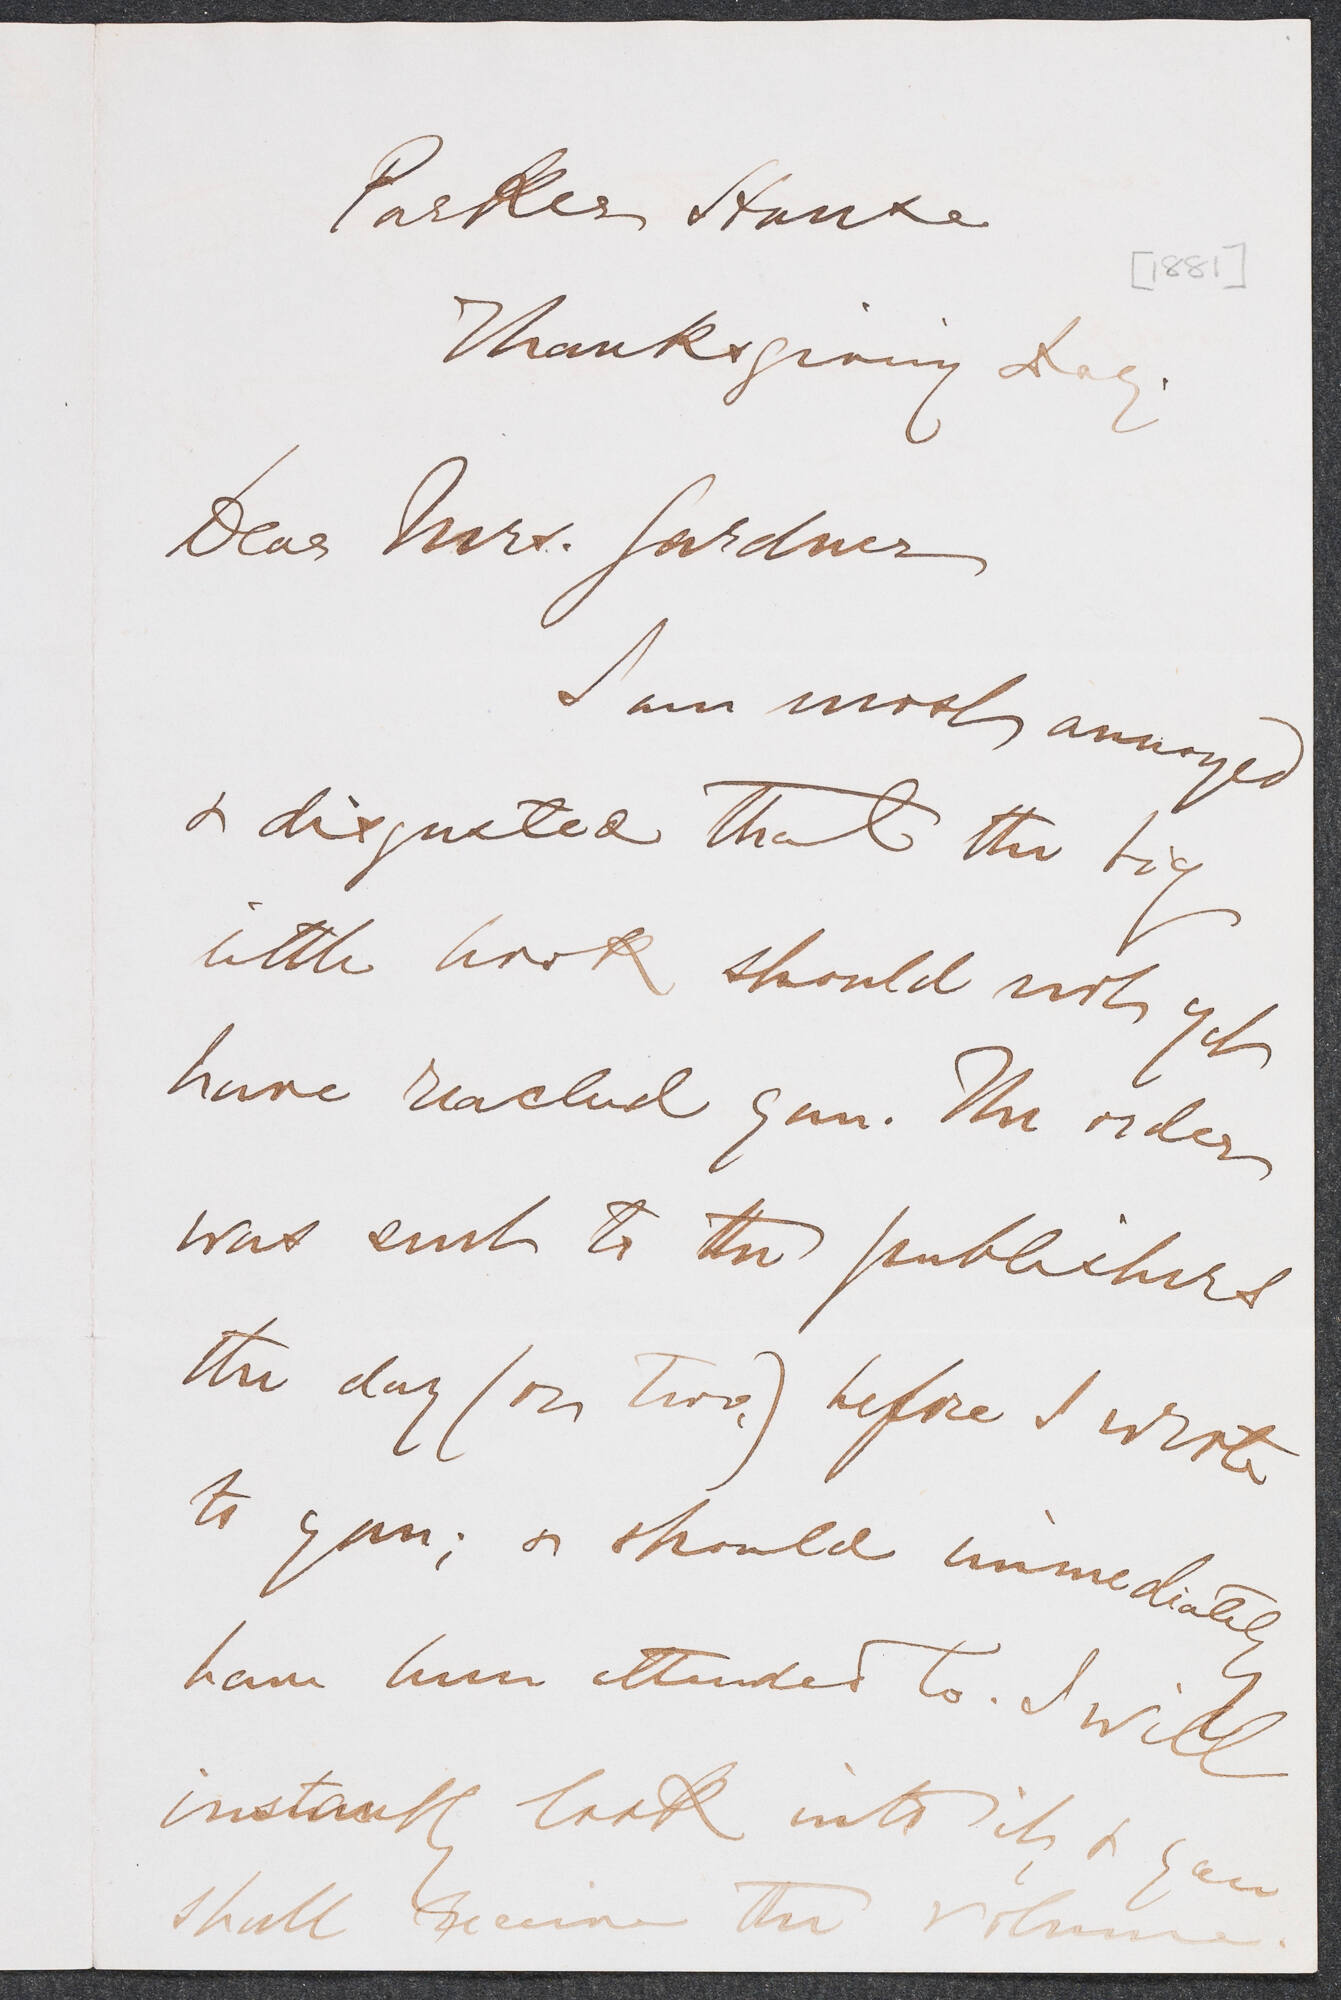 Parker House
[1881]
Thanksgiving Day.
Dear Mrs. Gardner
I am most annoyed
& disgusted that the big
little book should not yet
have reached you. The order
was sent to the publishers
the day (or two,) before I wrote
to you; & should immediately
have been attended to. I will
instantly look into it, & you
shall receive the volume.